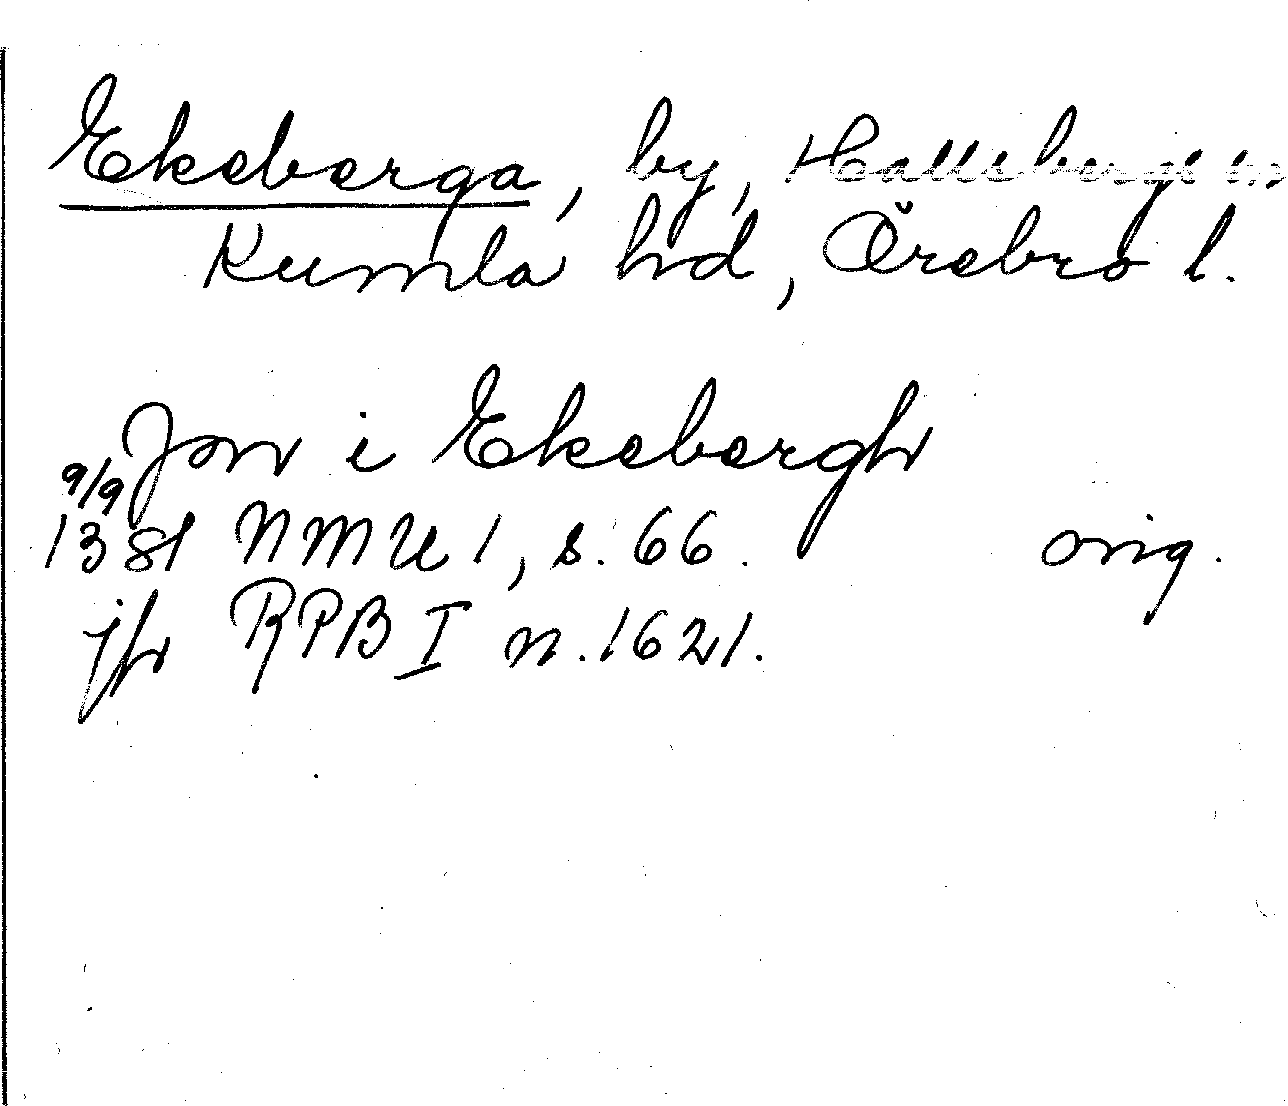 Ekeberga, by, Hallsbergs sn,
Kumla hd, Örebro l.
Jon i Ekebergh
9/9
1381 NMU 1, s. 66. orig.
jfr RPB I n. 1621.